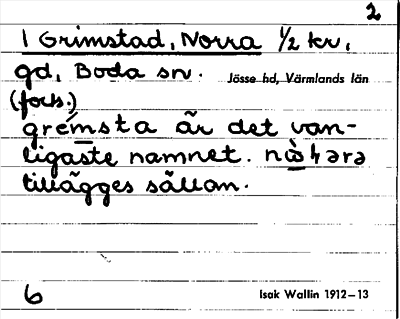 2
1 Grimstad, Norra ½ kr,
gd, Boda sn. Jösse hd, Värmlands län
(forts.)
grémsta är det van-
ligaste namnet.
tillägges sällan.
6 Isak Wallin 1912–13